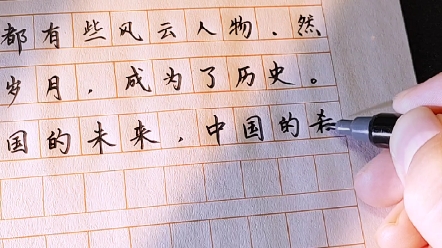 都有些风云人物、然
岁月，成为了历史。
国的未来，中国的